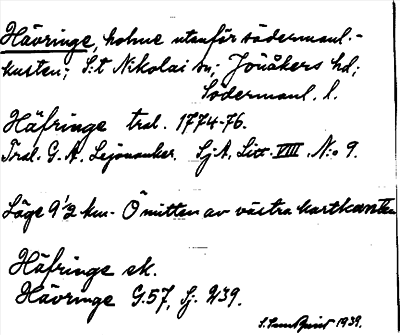 Hävringe, holme utanför södermanl.-
kusten; S:t Nikolai sn; Jönåkers hd;
Södermanl. l.
Häfringe trol. 1774-76.
Trol. G. A. Lejonanker. SjA, Litt. VIII N:o 9.
Läge 9 1/2 km. Ö mitten av västra kartkanten
Häfringe ek.
Hävringe G.57, Sj. 239.
1939.